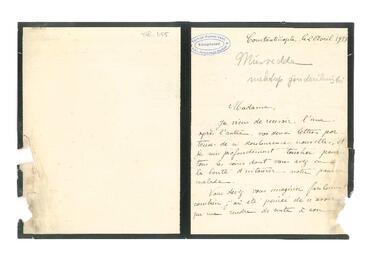 Constantinople, le 2 Avril
Müsvedde
Madame,
Je viens de recevoir, l'une
après l'autre, vos deux lettres por
teuses de si douloureuses nouvelles, et
suis profondément touchée pour
tous les soins dont vous avez eu
la bonté d'entourer notre pauvre
malade.
Vous devez vous imaginer facilement
combien j'ai été peinée de n'avoir
pu me rendre de suite à son